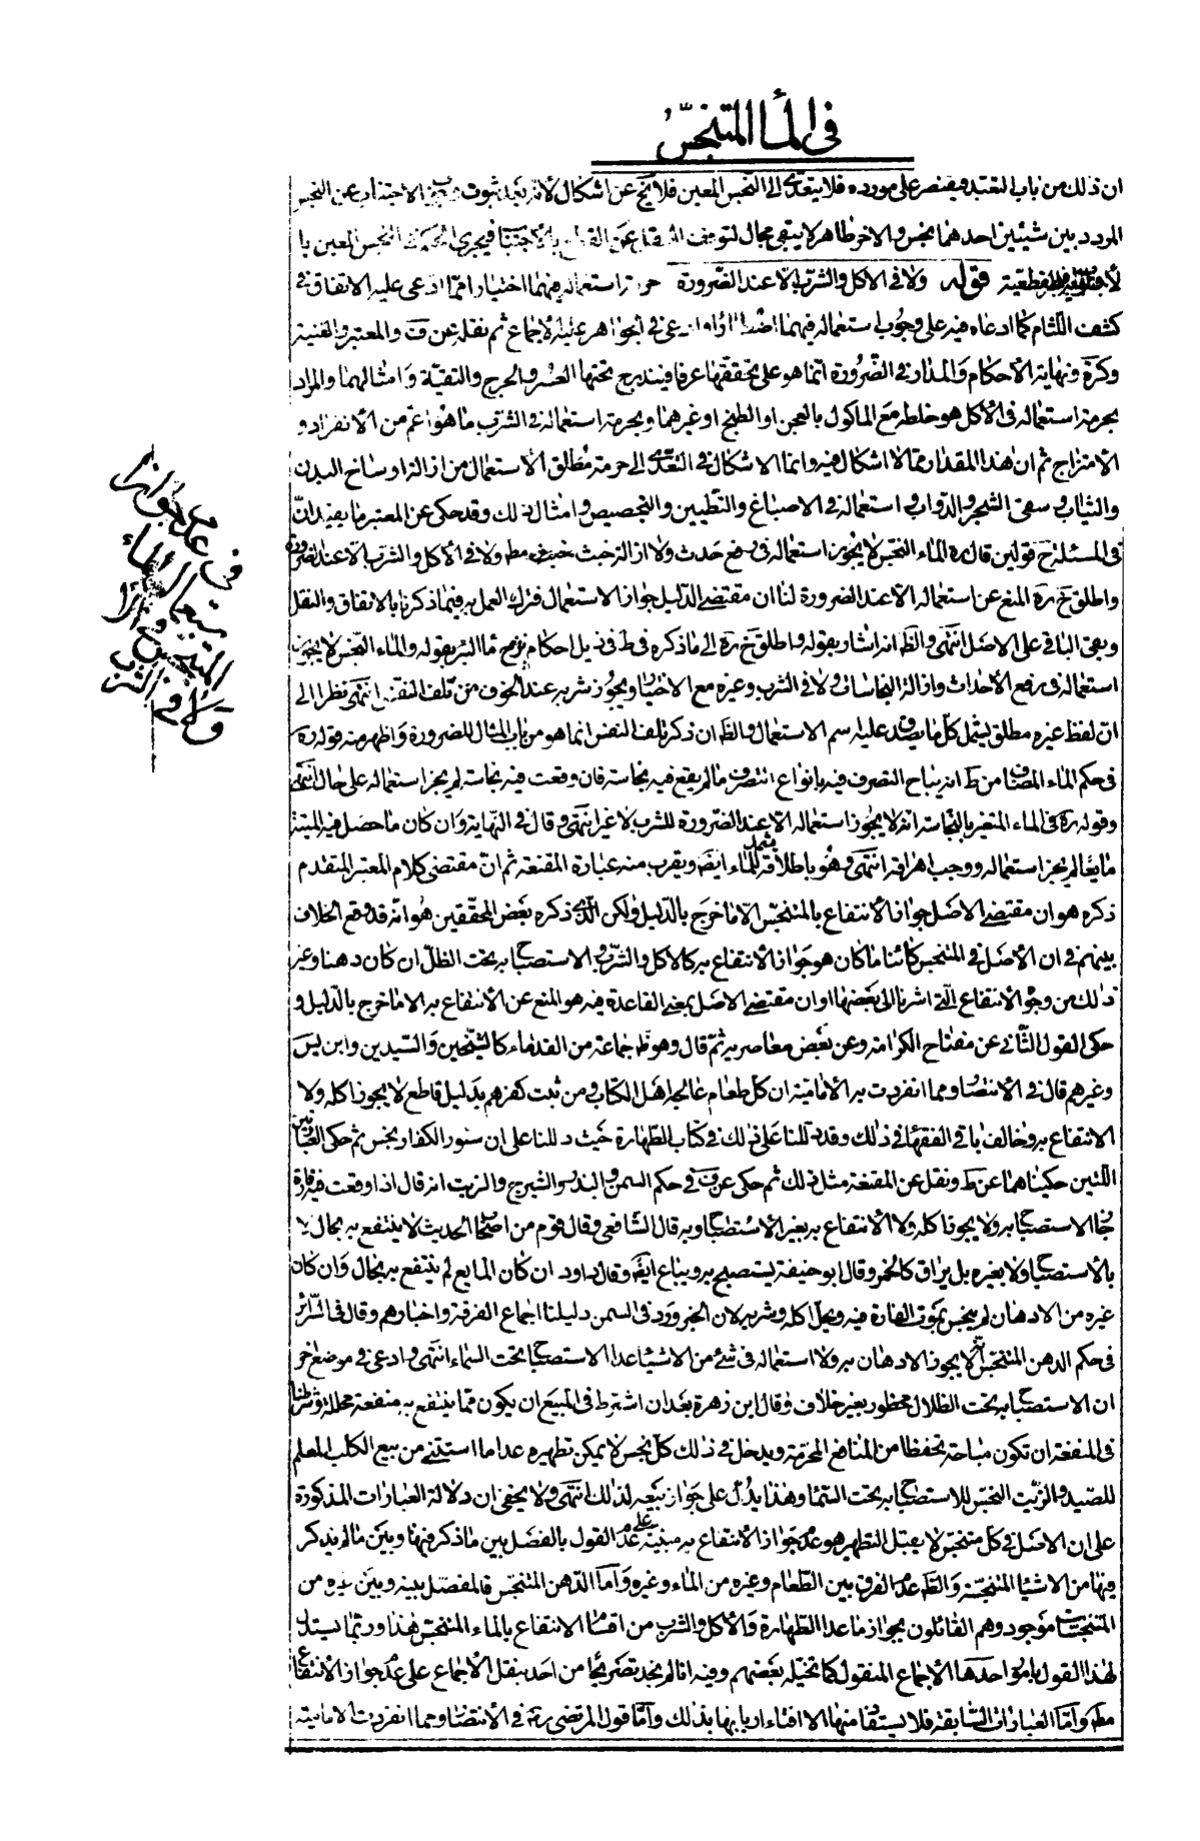 في الماء المتنجس
ان ذلك من باب التعبد فيقتصر على مورده فلا يتعدى الى النجس المعين فلا يخ عن اشكال لأنه بعد ثبوت الاجتناب عن النجس
المردد بين شيئين احدهما نجس والاخر طاهر لا يبقى مجال لتوقف فيجرى النجس المعين با
قوله ولا في الاكل والشرب الا عند الضرورة استعماله فيهما اختيارا مما ادعى عليه الاتفاق في
كشف اللثام كما ادعاه فيه على وجوب استعماله فيهما اضطرارا وادعى في الجواهر عليه الأجماع ثم نقله عن ف والمعتبر والغنية
وكرة ونهاية الأحكام والمدار في الضرورة انما هو على تحققها عرفا فيندرج تحتها العسر والحرج والتقية وامثالهما والمراد
بحرمة استعماله في الأكل هو خلطه مع الماكول بالعجن او الطبخ او غيرهما وبحرمة استعماله في الشرب ما هو اعم من الأنفراد و
الامتزاج ثم ان هذا المقدار مما لا اشكال فيه وانما الاشكال في التعدى الى حرمة مطلق الاستعمال من ازالة اوساخ البدن
والثياب وسقى الشجر والدواب واستعماله في الاصباغ والتطيين والتجصيص وامثال ذلك وقد حكى عن المعتبر ما يفيد ان
في المسئلة قولين قال ره الماء النجس لا يجوز استعماله في رفع حدث ولا ازالة خبث مط ولا في الأكل والشرب الا عند الضرورة
واطلق خ ره المنع عن استعماله الا عند الضرورة لنا ان مقتضى الدليل جواز الاستعمال فترك العمل به فيما ذكرنا بالاتفاق والنقل
وبقى الباقي على الاصل انتهى والظ انه اشار بقوله واطلق خ ره الى ما ذكره في ط في ذيل احكام ماء البئر بقوله والماء النجس لا يجوز
استعماله في رفع الأحداث وازالة النجاسات ولا في الشرب وغيره مع الاختيار ويجوز شربه عند الخوف من تلف النفس انتهى نظرا الى
ان لفظ غيره مطلق يشمل كل ما يصدق عليه اسم الاستعمال والظ ان ذكر تلف النفس انما هو من باب المثال للضرورة واظهر منه قوله ره
في حكم الماء المضاف من ط انه يباح التصرف فيه بانواع التصرف ما لم يقع فيه نجاسة فان وقعت فيه نجاسة لم يجز استعماله على حال انتهى
وقوله ره في الماء المتغير بالنجاسة انه لا يجوز استعماله الا عند الضرورة للشرب لا غير انتهى وقال في النهاية وان كان ما حصل فيه الميتة
مايعا لم يجز استعماله ووجب اهراقه انتهى وهو باطلاقه يشمل للماء ايضا ويقرب منه عبارة المقنعة ثم ان مقتضى كلام المعتبر المتقدم
ذكره هو ان مقتضى الاصل جواز الأنتفاع بالمتنجس الا ما خرج بالدليل ولكن الذى ذكره بعض المحققين هو انه قد وقع الخلاف
بينهم في ان الأصل في المتنجس كائنا ما كان هو جواز الأنتفاع به كالاكل والشرب والاستصباح به تحت الظل ان كان دهنا وغير
ذلك من وجوه الأنتفاع التي اشرنا الى بعضها او ان مقتضى الاصل بمعنى القاعدة فيه هو المنع عن الأنتفاع به الا ما خرج بالدليل و
حكى القول الثاني عن مفتاح الكرامة وعن بعض معاصريه ثم قال وهو ظ جماعة من القدماء كالشيخين والسيدين وابن ادريس
وغيرهم قال في الأنتصار ومما انفردت به الأمامية ان كل طعام عالجه اهل الكتاب ومن ثبت كفرهم بدليل قاطع لا يجوز اكله ولا
الانتفاع به وخالف باقي الفقهاء في ذلك وقد دللنا على ذلك في كتاب الطهارة حيث دللنا على ان سئور الكفار نجس ثم حكى العبارتين
اللتين حكيناهما عن ط ونقل عن المقنعة مثل ذلك ثم حكى عن ف في حكم السمن والبذر والشيرج والزيت انه قال اذا وقعت فيه فارة
جاز الاستصباح به ولا يجوز اكله ولا الأنتفاع به بغير الاستصباح وبه قال الشافعي وقال قوم من اصحاب الحديث لا ينتفع به بحال لا
بالأستصباح ولا بغيره بل يراق كالخمر وقال ابو حنيفة يستصبح به ويباع ايضا وقال داود ان كان المايع لم ينتفع به بحال وان كان
غيره من الادهان لم ينجس بموت الفارة فيه ويحل اكله وشربه لان الخبر ورد في السمن دليلنا اجماع الفرقة واخبارهم وقال في السرائر
في حكم الدهن المتنجس انه لا يجوز الادهان به ولا استعماله في شئ من الاشياء عدا الاستصباح تحت السماء انتهى وادعى في موضع اخر
ان الاستصباح به تحت الظلال محظور بغير خلاف وقال ابن زهرة بعد ان اشترط في المبيع ان يكون مما ينتفع به منفعة محللة وشرطنا
في المنفعة ان تكون مباحة تحفظا من المنافع المحرمة ويدخل في ذلك كل نجس لا يمكن تطهيره عدا ما استثنى من بيع الكلب المعلم
للصيد والزيت النجس للاستصباح به تحت السماء وهذا يدل على جواز بيعه لذلك انتهى ولا يخفى ان دلالة العبارات المذكورة
على ان الاصل في كل متنجس لا يقبل التطهير هو عدم جواز الأنتفاع به مبنية على عدم القول بالفصل بين ما ذكر فيها وبين ما لم يذكر
فيها من الاشياء المتنجسة والظ عدم الفرق بين الطعام وغيره من الماء وغيره واما الدهن المتنجس فالمفصل بينه وبين غيره من
المتنجسات موجود وهم القائلون بجواز ما عدا الطهارة والأكل والشرب من اقسام الانتفاع بالماء المتنجس هذا وربما يستدل
لهذا القول بامور احدها الأجماع المنقول كما تخيله بعضهم وفيه انا لم نجد تصريحا من احد بنقل الأجماع على عدم جواز الأنتفاع
مط واما العبارات السابقة فلا يستفاد منها الا افتاء اربابها بذلك واما قول المرتضى ره في الأنتصار ومما انفردت الامامية
في عدم جواز
استعمال الماء
المتنجس في الا
ولا في الشرب